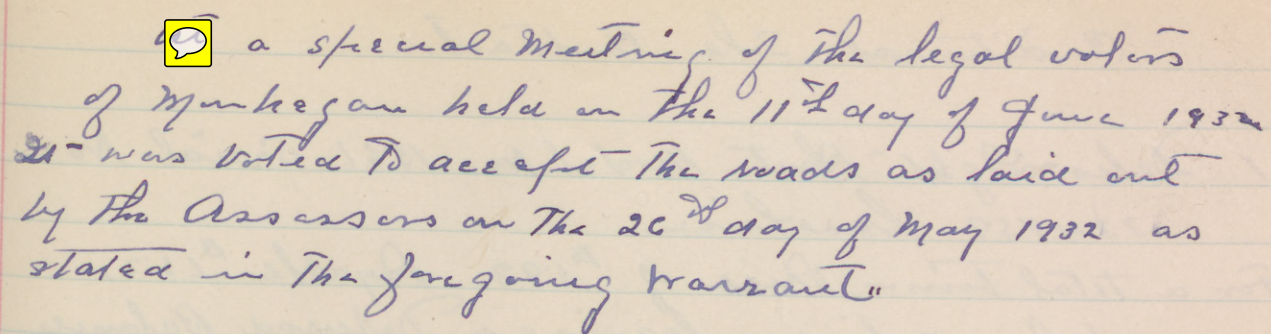 At a special Meeting of the legal voters
of Monhegan held on the 11th day of June 1932
it was voted to accept the roads as laid out
by the Assessors on The 26th day of May 1932 as
stated in the foregoing Warrant."